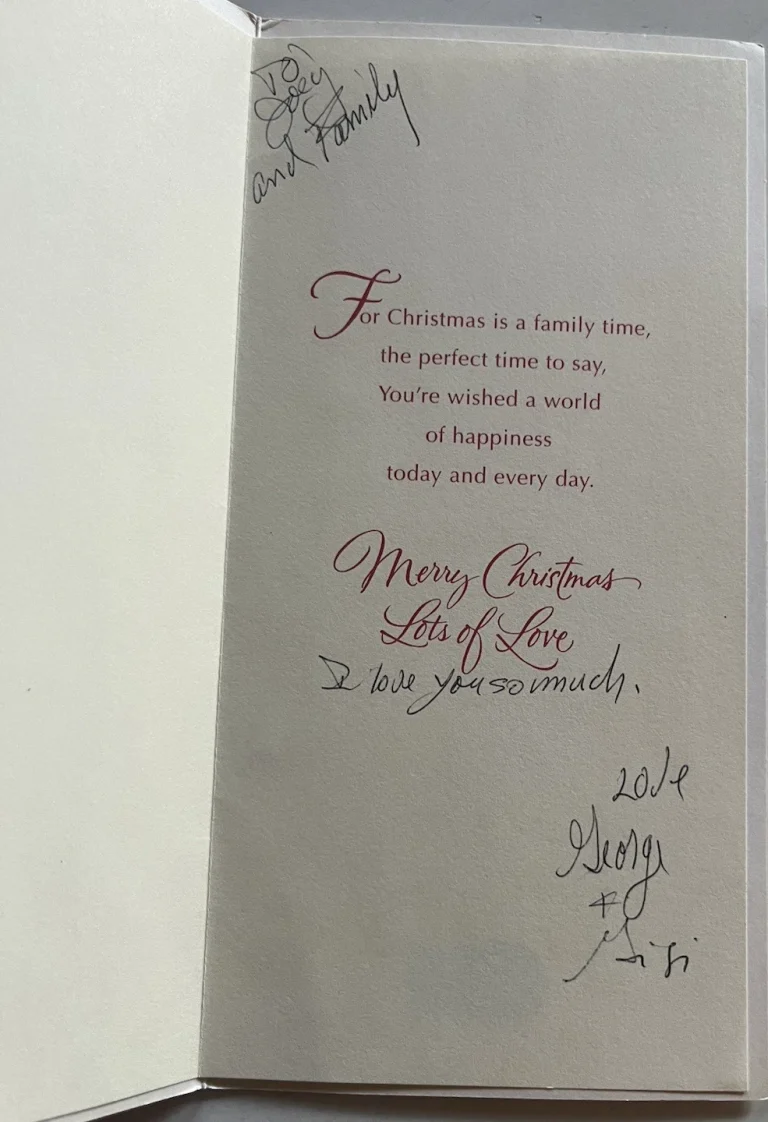 To
Joey
and Family
For Christmas is a family time,
the perfect time to say,
You're wished a world
of happiness
today and every day.
Merry Christmas
Lots of Love
I love you so much.
Love
George
+
Gigi